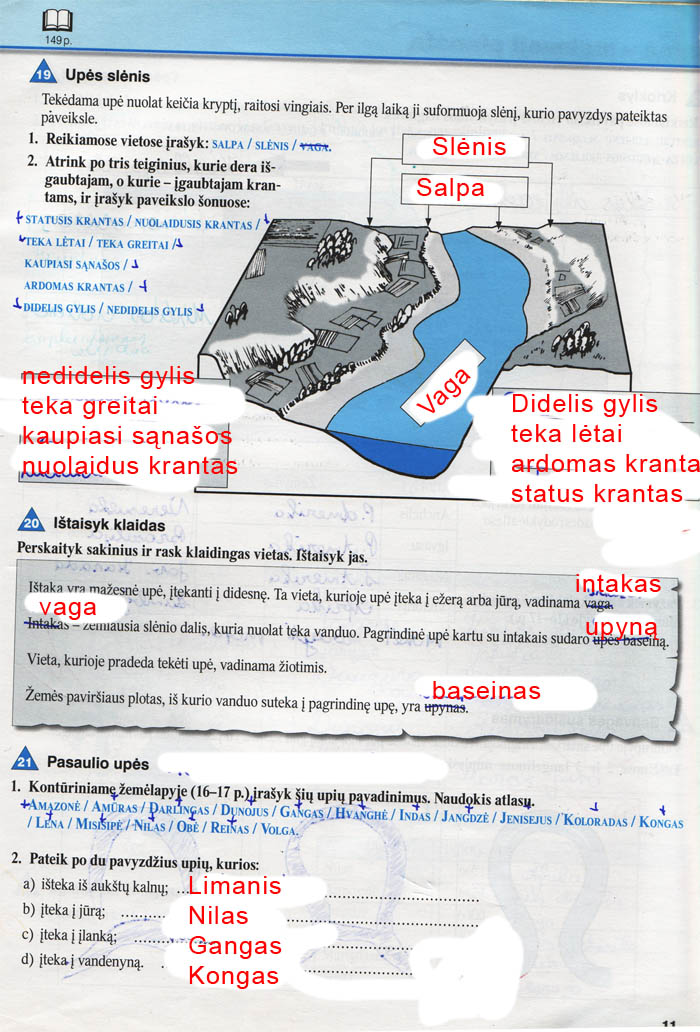 149 p.
19 Upės slėnis
Tekėdama upė nuolat keičia kryptį, raitosi vingiais. Per ilgą laiką ji suformuoja slėnį, kurio pavyzdys pateiktas
paveiksle.
1. Reikiamose vietose įrašyk: SALPA / SLĖNIS / VAGA.
Slėnis
2. Atrink po tris teiginius, kurie dera iš-
gaubtajam, o kurie – įgaubtajam kran-
tams, ir įrašyk paveikslo šonuose:
Salpa
STATUSIS KRANTAS / NUOLAIDUSIS KRANTAS /
TEKA LĖTAI / TEKA GREITAI /
KAUPIASI SĄNAŠOS /
ARDOMAS KRANTAS /
DIDELIS GYLIS / NEDIDELIS GYLIS
Vaga
nedidelis gylis
teka greitai
kaupiasi sąnašos
nuolaidus krantas
Didelis gylis
teka lėtai
ardomas kranta
status krantas
20 Ištaisyk klaidas
Perskaityk sakinius ir rask klaidingas vietas. Ištaisyk jas.
intakas
Ištaka yra mažesnė upė, įtekanti į didesnę. Ta vieta, kurioje upė įteka į ežerą arba jūrą, vadinama vaga.
vaga
upyną
Intakas – žemiausia slėnio dalis, kuria nuolat teka vanduo. Pagrindinė upė kartu su intakais sudaro upės baseiną.
Vieta, kurioje pradeda tekėti upė, vadinama žiotimis.
baseinas
Žemės paviršiaus plotas, iš kurio vanduo suteka į pagrindinę upę, yra upynas.
21 Pasaulio upės
1. Kontūriniame žemėlapyje (16–17 p.) įrašyk šių upių pavadinimus. Naudokis atlasu.
AMAZONĖ / AMŪRAS / DARLINGAS / DUNOJUS / GANGAS / HVANGHĖ / INDAS / JANGDZĖ / JENISEJUS / KOLORADAS / KONGAS
/ LENA / MISISIPĖ / NILAS / OBĖ / REINAS / VOLGA.
2. Pateik po du pavyzdžius upių, kurios:
a) išteka iš aukštų kalnų; Limanis
b) įteka į jūrą; Nilas
c) įteka į įlanką; Gangas
d) įteka į vandenyną. Kongas
11